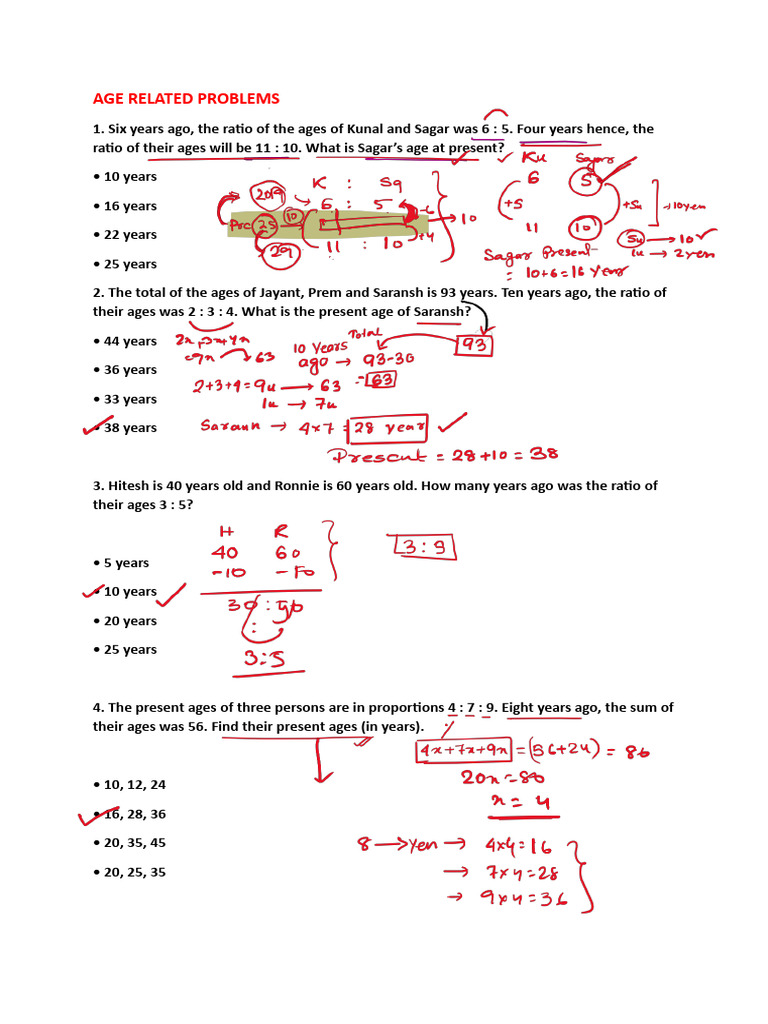 AGE RELATED PROBLEMS
1. Six years ago, the ratio of the ages of Kunal and Sagar was 6 : 5. Four years hence, the
ratio of their ages will be 11 : 10. What is Sagar's age at present?
• 10 years
• 16 years
• 22 years
• 25 years
K : Sg
2019
6 : 5
-6
Pre 25
10
10
+4
29
11 : 10
Ku Sagar
6 5
+5 +5u → 10 yen
11 10
5u → 10
1u → 2 yen
Sagar Present
= 10+6=16 Year
2. The total of the ages of Jayant, Prem and Saransh is 93 years. Ten years ago, the ratio of
their ages was 2 : 3 : 4. What is the present age of Saransh?
• 44 years
• 36 years
• 33 years
• 38 years
2x, 3x, 4x
9x 63
10 Years Total
ago → 93-30
= 63
93
2+3+4=9u → 63
1u → 7u
Saransh → 4x7 = 28 year
Present = 28+10 = 38
3. Hitesh is 40 years old and Ronnie is 60 years old. How many years ago was the ratio of
their ages 3 : 5?
• 5 years
• 10 years
• 20 years
• 25 years
H R
40 60
-10 -10
30 : 50
:
3:5
3:9
4. The present ages of three persons are in proportions 4 : 7 : 9. Eight years ago, the sum of
their ages was 56. Find their present ages (in years).
• 10, 12, 24
• 16, 28, 36
• 20, 35, 45
• 20, 25, 35
4x+7x+9x = (56+24) = 80
20x=80
x = 4
8 → Yen → 4x4=16
→ 7x4=28
→ 9x4=36